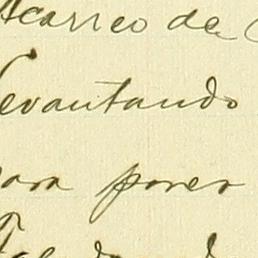 Acarreo de
Levantando
para poner